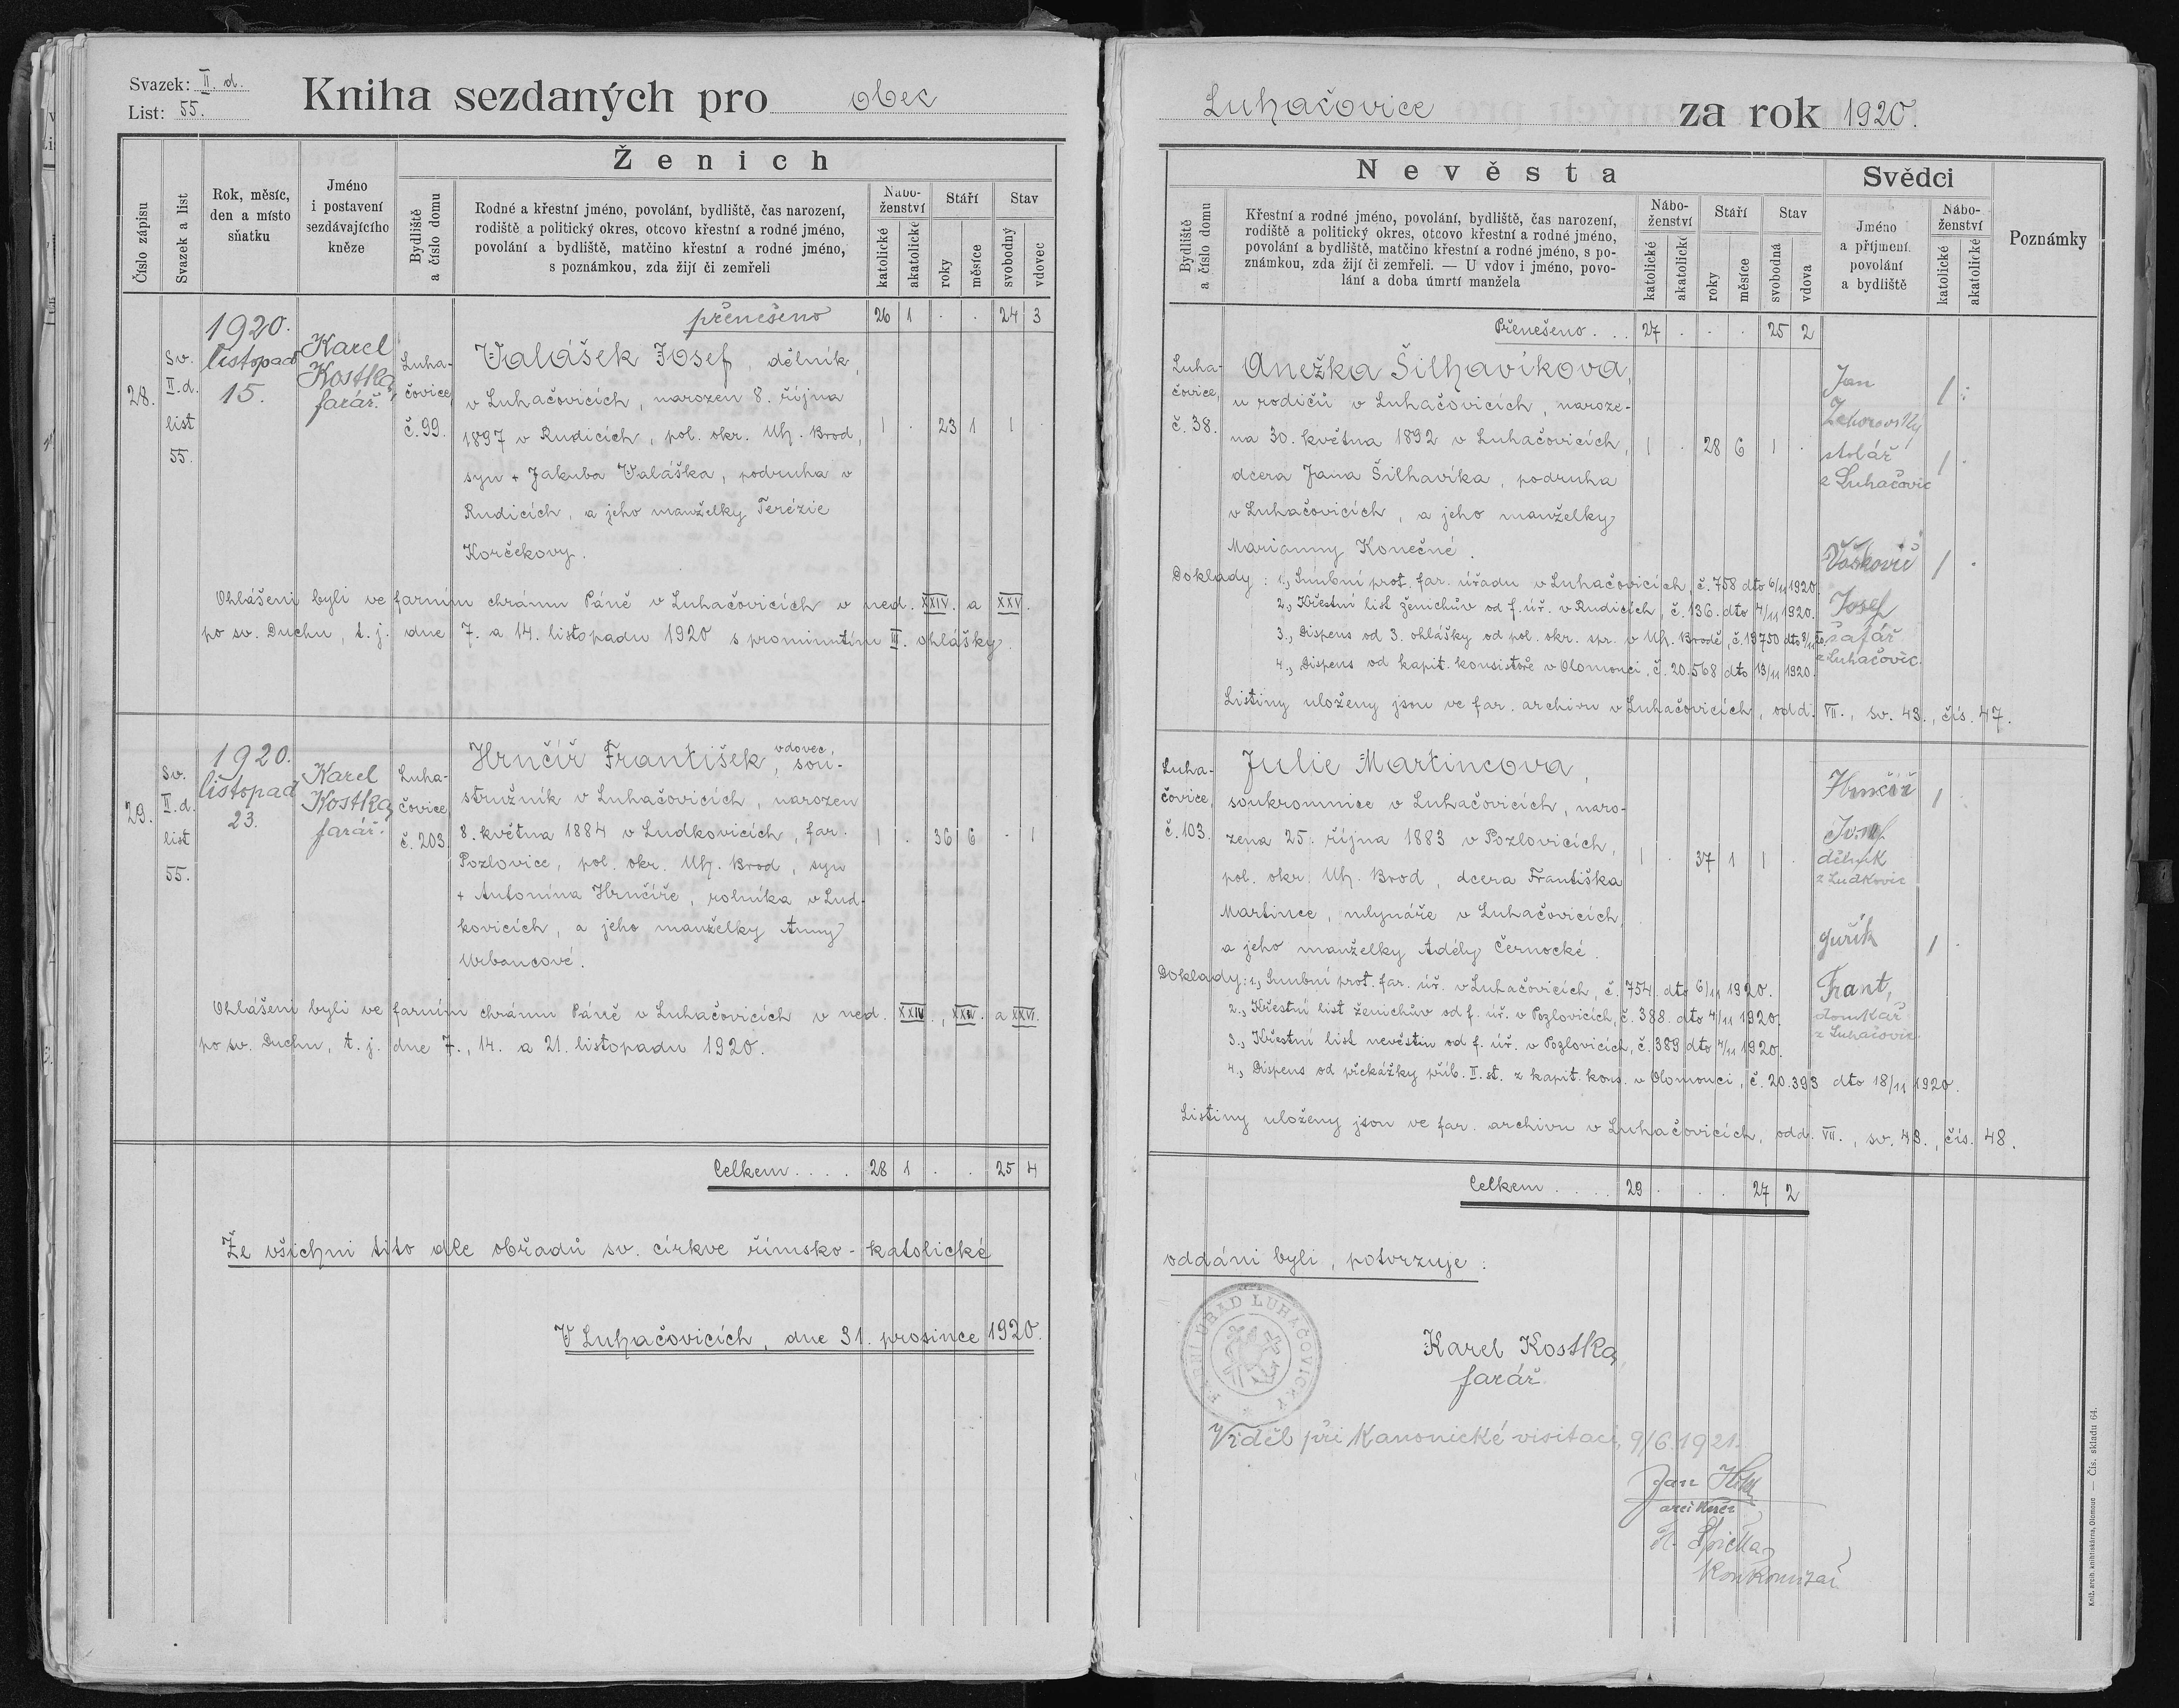 Svazek: II. d.
List: 55.
Kniha sezdaných pro obec
Ženich
Číslo zápisu
Svazek a list
Rok, měsíc,
den a místo
sňatku
Jméno
i postavení
sezdávajícího
kněze
Bydliště
a číslo domu
Rodné a křestní jméno, povolání, bydliště, čas narození,
rodiště a politický okres, otcovo křestní a rodné jméno,
povolání a bydliště, matčino křestní a rodné jméno,
s poznámkou, zda žijí či zemřeli
Nábo-
ženství
katolické
akatolické
Stáří
roky
měsíce
Stav
svobodný
vdovec
přenešeno 26 1 . . 24 3
28.
Sv.
II. d.
list
55.
1920.
listopad
15.
Karel
Kostka,
farář.
Luha-
čovice,
č. 99.
Valášek Josef, dělník,
v Luhačovicích, narozen 8. října
1897 v Rudicích, pol. okr. Uh. Brod, 1 . 23 1 1 .
syn + Jakuba Valáška, podruha v
Rudicích, a jeho manželky Terézie
Korčekovy.
Ohlášeni byli ve farním chrámu Páně v Luhačovicích v ned. XXIV. a XXV.
po sv. Duchu, t. j. dne 7. a 14. listopadu 1920 s prominutím III. ohlášky.
29.
Sv.
II. d.
list
55.
1920.
listopad
23.
Karel
Kostka,
farář.
Luha-
čovice
č. 203.
Hrnčíř František, vdovec, sou-
stružník v Luhačovicích, narozen
8. května 1884 v Ludkovicích, far. 1 . 36 6 . 1
Pozlovice, pol. okr. Uh. Brod, syn
+ Antonína Hrnčíře, rolníka v Lud-
kovicích, a jeho manželky Anny
Urbancové.
Ohlášeni byli ve farním chrámu Páně v Luhačovicích v ned. XXIV., XXV. a XXVI.
po sv. Duchu, t. j. dne 7., 14. a 21. listopadu 1920.
Celkem . . . . 28 1 . . 25 4
Že všichni tito dle obřadů sv. církve římsko-katolické
V Luhačovicích, dne 31. prosince 1920.
Luhačovice za rok 1920.
Nevěsta
Svědci
Bydliště
a číslo domu
Křestní a rodné jméno, povolání, bydliště, čas narození,
rodiště a politický okres, otcovo křestní a rodné jméno,
povolání a bydliště, matčino křestní a rodné jméno, s po-
známkou, zda žijí či zemřeli. — U vdov i jméno, povo-
lání a doba úmrtí manžela
Nábo-
ženství
katolické
akatolické
Stáří
roky
měsíce
Stav
svobodná
vdova
Jméno
a příjmení
povolání
a bydliště
Nábo-
ženství
katolické
akatolické
Poznámky
Přenešeno . . . 27 . . . 25 2
Luha-
čovice,
č. 38.
Anežka Šilhavíkova,
u rodičů v Luhačovicích, naroze-
na 30. května 1892 v Luhačovicích, 1 . 28 6 1 .
dcera Jana Šilhavíka, podruha
v Luhačovicích, a jeho manželky
Marianny Konečné.
Jan
stolář
z Luhačovic
Vaškovič
Josef
šafář
z Luhačovic.
Doklady: 1., Snubní prot. far. úřadu v Luhačovicích, č. 758 dto 6/11 1920.
2., Křestní list ženichův od f. úř. v Rudicích, č. 136. dto 4/11 1920.
3., Dispens od 3. ohlášky od pol. okr. spr. v Uh. Brodě, č. 19750 dto 8/11 20.
4., Dispens od kapit. konsistoře v Olomouci, č. 20.568 dto 13/11 1920.
Listiny uloženy jsou ve far. archivu v Luhačovicích, odd. VII., sv. 43., čís. 47.
Luha-
čovice,
č. 103.
Julie Martincova,
soukromnice v Luhačovicích, naro-
zena 25. října 1883 v Pozlovicích, 1 . 37 1 1 .
pol. okr. Uh. Brod, dcera Františka
Martince, mlynáře v Luhačovicích,
a jeho manželky Adély Černocké.
Hrnčíř
Josef
dělník
z Ludkovic
Guřík
Frant,
domkář
z Luhačovic.
Doklady: 1., Snubní prot. far. úř. v Luhačovicích, č. 754. dto 6/11 1920.
2., Křestní list ženichův od f. úř. v Pozlovicích, č. 388. dto 4/11 1920.
3., Křestní list nevěstin od f. úř. v Pozlovicích, č. 389 dto 4/11 1920.
4., Dispens od překážky příb. II. st. z kapit. kons. v Olomouci, č. 20.393 dto 18/11 1920.
Listiny uloženy jsou ve far. archivu v Luhačovicích, odd. VII., sv. 43., čís. 48.
Celkem . . . . 29 . . . 27 2
oddáni byli, potvrzuje:
FARNÍ ÚŘAD LUHAČOVICKÝ
Karel Kostka,
farář.
Viděl při kanonické visitaci, 9/6.1921.
Jan
Kniž. arcib. knihtiskárna, Olomouc — Čís. skladu 64.